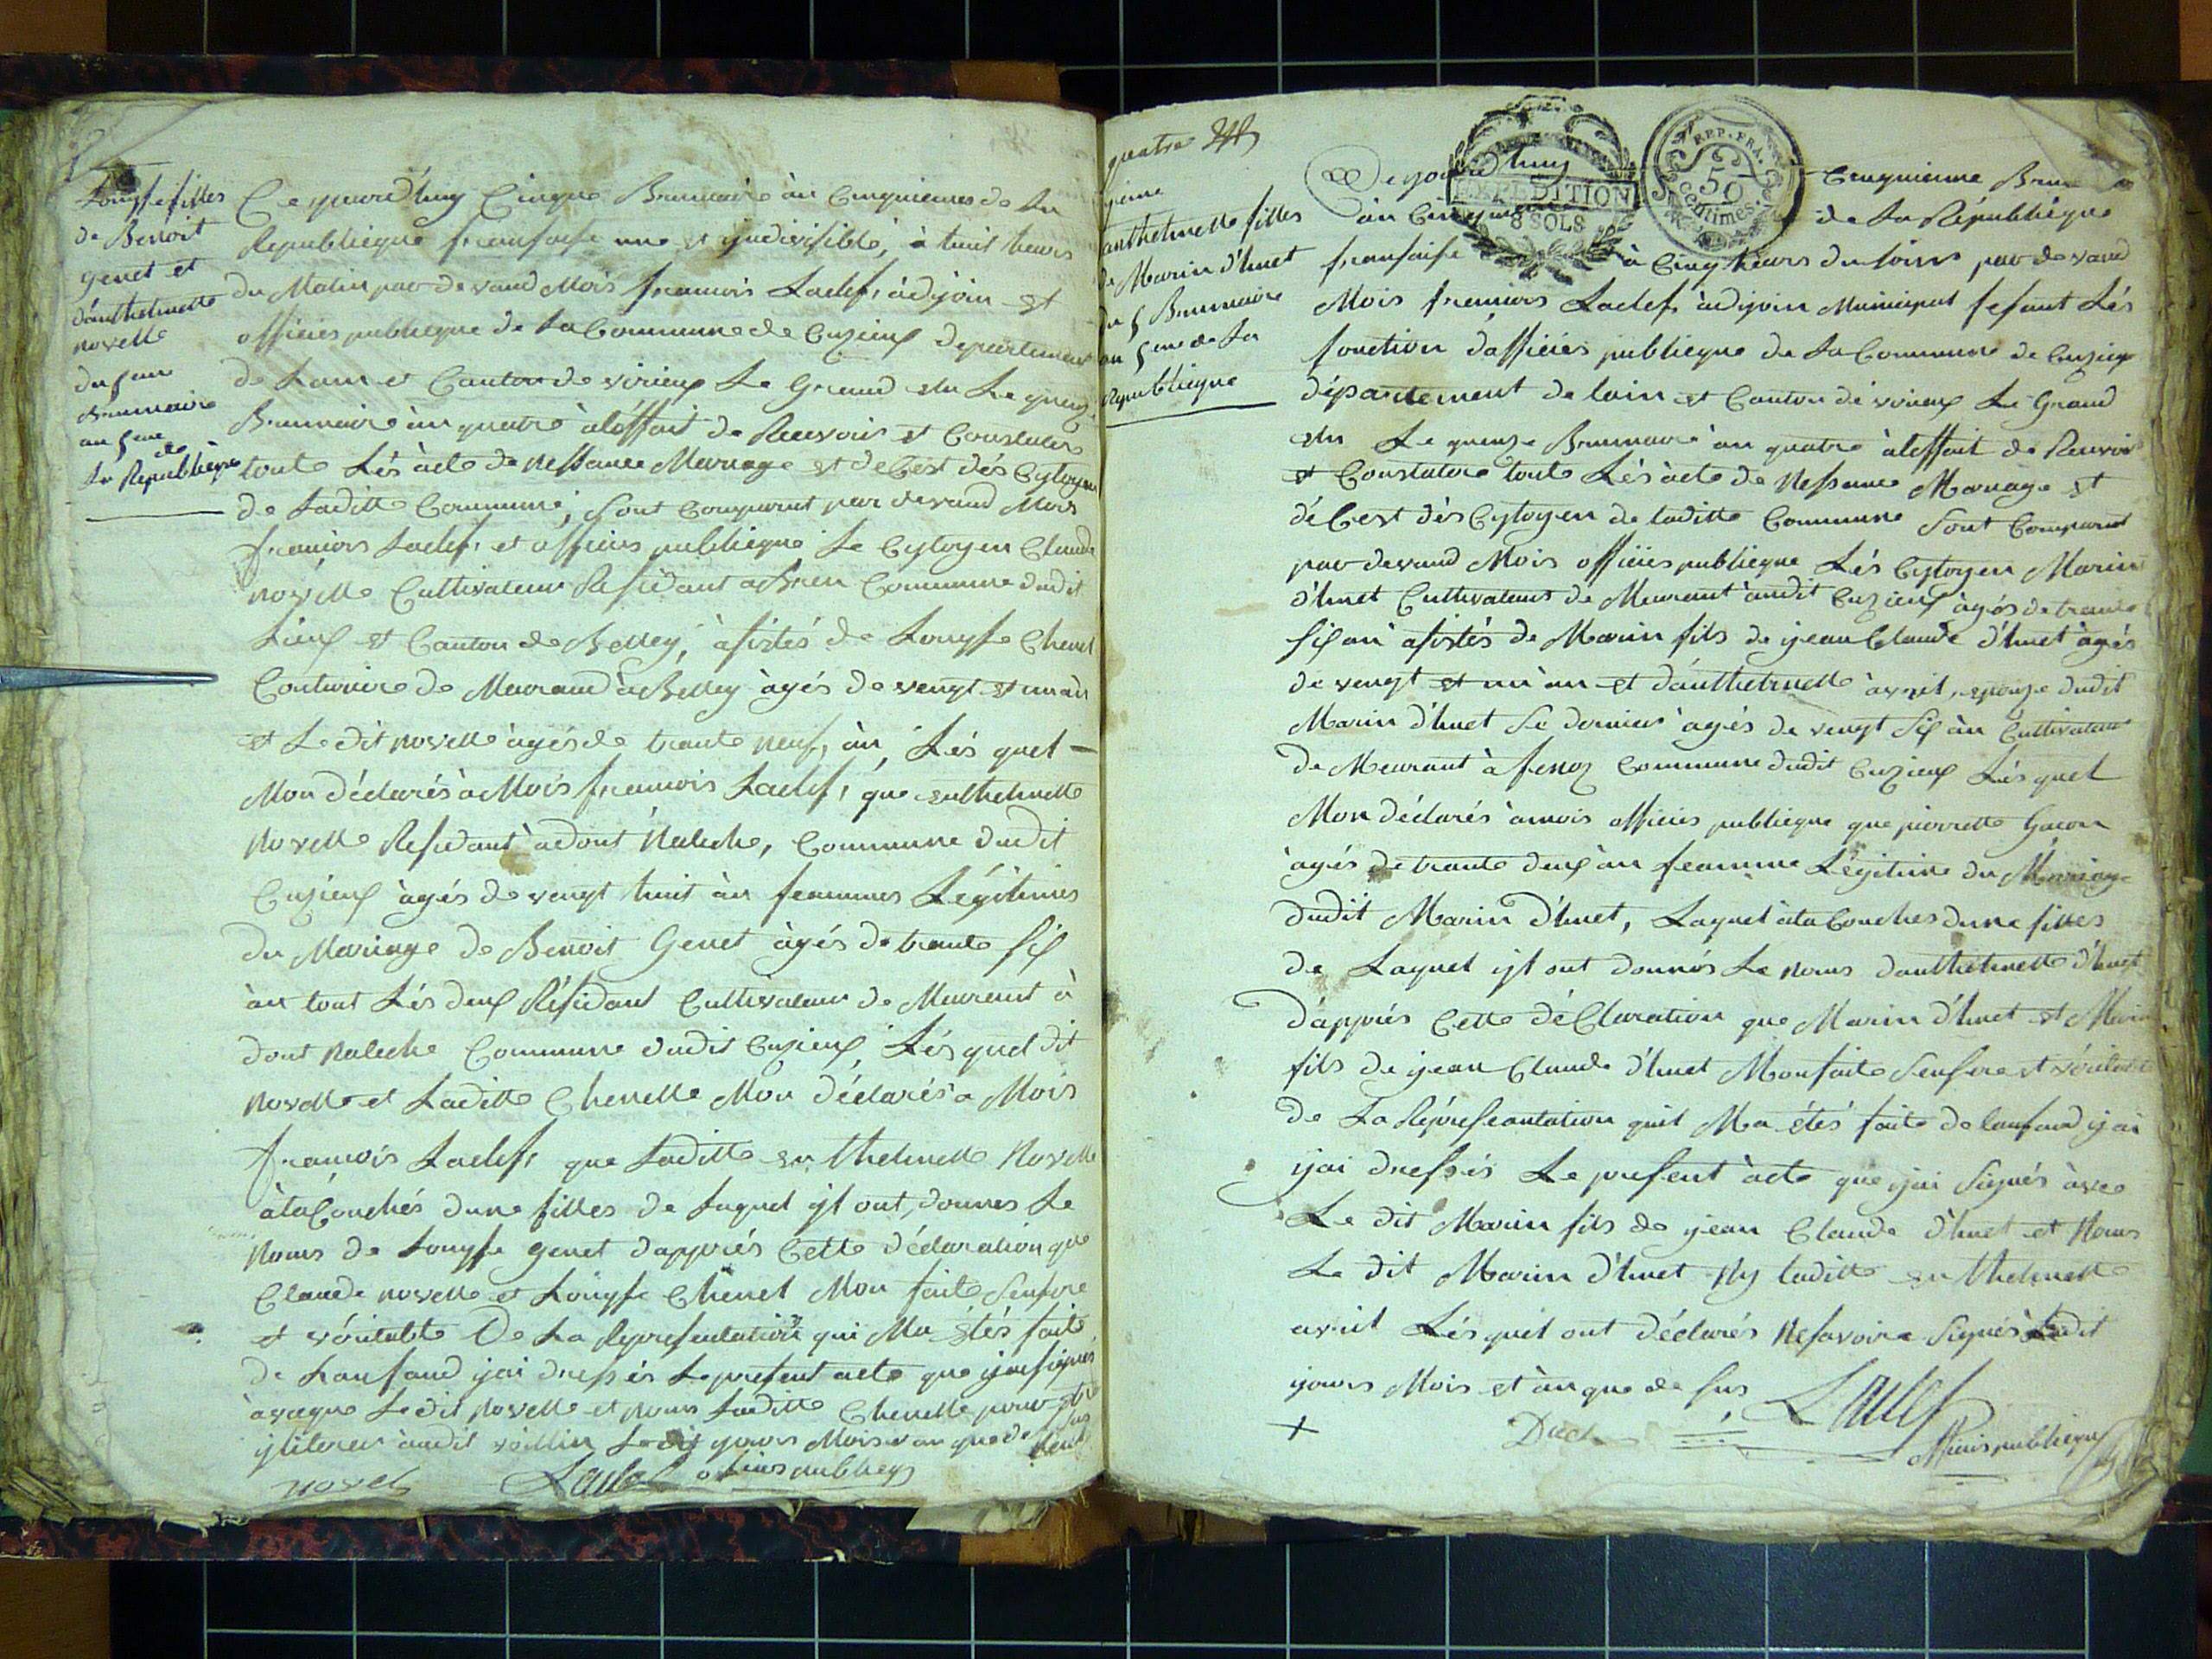 Louysse filles
de Benoit
genet et
d'anthelmette
novelle
du 5eme
Brumaire
an 5eme
de
La Republieque
Ce yourd'huy Cinque Brumaire àn Cinquiemes de La
Republieque franfaise une et yndivisible, à huit heurs
du Matin par devand Mois francois Laclef, àdjoin et
officies publieque de La Commune de Cuzieux departement
de Lain et Canton de virieux Le Grand elu Le quenze
Brumaire àn quatre àléffait de Recevoir et Constater
toute Lés àcte de Nessance Mariage et deCest dés Cytoyen
de Laditte Commune, Sont Comparut par devand Mois
francois Laclef, et officies publieque Le Cytoyen Claude
novelle Cultivateur Résidant a Bren Commune dudit
Lieux et Canton de Belley, àsistés de Louysse Chenel
Couturiere de Meurand à Belley àgés de vengt et un àn
et Ledit novelle àgés de trante neuf, àn, Lés quel
Mon déclarés à Mois francois Laclef, que enthelmette
Novelle Résidant àdont Naleche, Commune dudit
Cuzieux àgés de vengt huit àn feammes Légitimes
du Mariage de Benoit Genet àgés de trante six
àn tout Lés deux Résidant Cultivateur de Meurant à
dont Naleche Commune dudit Cuzieux, Lés quel dit
Novelle et Laditte Chenelle Mon déclarés à Mois
francois Laclef, que Laditte enthelmette Novelle
àta Couchés dune filles de Laquel yl ont donnes Le
Noms de Louysse genet dapprés Cette déclaration que
Claude novelle et Louysse Chenel Mon faite Senfere
et véritable De La Représentation qui Ma étés faite
de Lanfand yai dressés Le présent acte que yai signés
àvecque Ledit Novelle et Noms Laditte Chenelle pour etre
ylliterer àudit Ledit yours Mois et àn que de sus
novel Laclef officies publieq
quatre
anthelmette filles
de Marin d'huet
du 5 Brumaire
an 5eme de La
Republieque
EXPEDITION
8 SOLS
REP. FRA.
50
Centimes.
Ce yourd'huy Cinquieme Brumaire
àn Cinquieme de La République
franfaise à Cinq heurs du soirs par devand
Mois francois Laclef, àdjoin Municipal fesant Lés
fonction dofficies publieque de La Commune de Cuzieux
département de lain et Canton de virieux Le Grand
elu Le quenze Brumaire àn quatre àleffait de Recevoir
et Constater toute Lés àcte de Nessance Mariage et
déCest dés Cytoyen de laditte Commune Sont Comparut
par devand Mois officies publieque Lés Cytoyen Marin
d'huet Cultivateur de Meurant àudit Cuzieux àgés de trante
six àn àsistés de Marin fils de yean Claude d'huet àgés
de vengt et un àn et d'anthelmette àvril, epouze dudit
Marin d'huet Le dernier àgés de vengt six àn Cultivateur
de Meurant à fenoz Commune dudit Cuzieux Lés quel
Mon déclarés àmois officies publieque que pierrette Gacon
àgés de trante deux àn feamme Légitime du Mariage
dudit Marin d'huet, Laquel àta Couches dune filles
de Laquel yl ont donnés Le Noms d'anthelmette d'huet
dapprés Cette déClaration que Marin d'huet et Marin
fils de yean Claude d'huet Mon faite Senfere et véritable
de La Représeantation quil Ma étés faite de lanfand yai
yai dressés Le present àcte que yai signés àvec
Le dit Marin fils de yean Claude d'huet et Noms
Le dit Marin d'huet Ny laditte enthelmette
avril Lés quel ont déclarés Nesavoire Signés Ledit
yours Mois et àn que de sus
Laclef
officis publieque